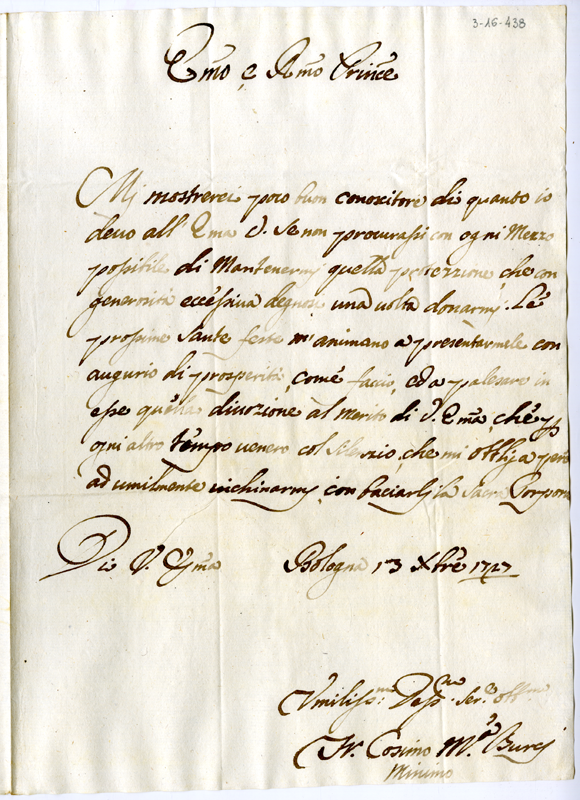 3-16-438
Emo, e Rmo Princẽ
Mi mostrerei poco buon conoscitore di quanto io
devo all' Ema V. se non procurassi con ogni Mezzo
possibile di Mantenermi quella protezzione, che con
generosità eccessiva degnosi una volta donarmi. Le
prossime Sante feste m'animano a presentarmele con
augurio di prosperità, come faccio, ed a palesare in
esse quella divozione al merito di V. Ema, che
ogni altro tempo venero col silenzio, che mi obbliga
ad umilmente inchinarmi, con baciarli la Sacra Porpora
Di V. Ema Bologna 13 Xbre 1727
Umiliss.mo Ser.e Obb.mo
Fr. Cosimo M.a
Minimo